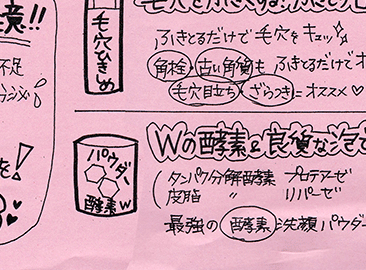 境!!
不足
毛穴ひきしめ
ふきとるだけで毛穴をキュッ
角栓・古い角質も ふきとるだけでオ
毛穴目立ち・ざらつきにオススメ♡
を!
パウダー
酵素W
Wの酵素&良質な泡で
タンパク分解酵素 プロテアーゼ
皮脂 〃 リパーゼ
最強の酵素洗顔パウダー